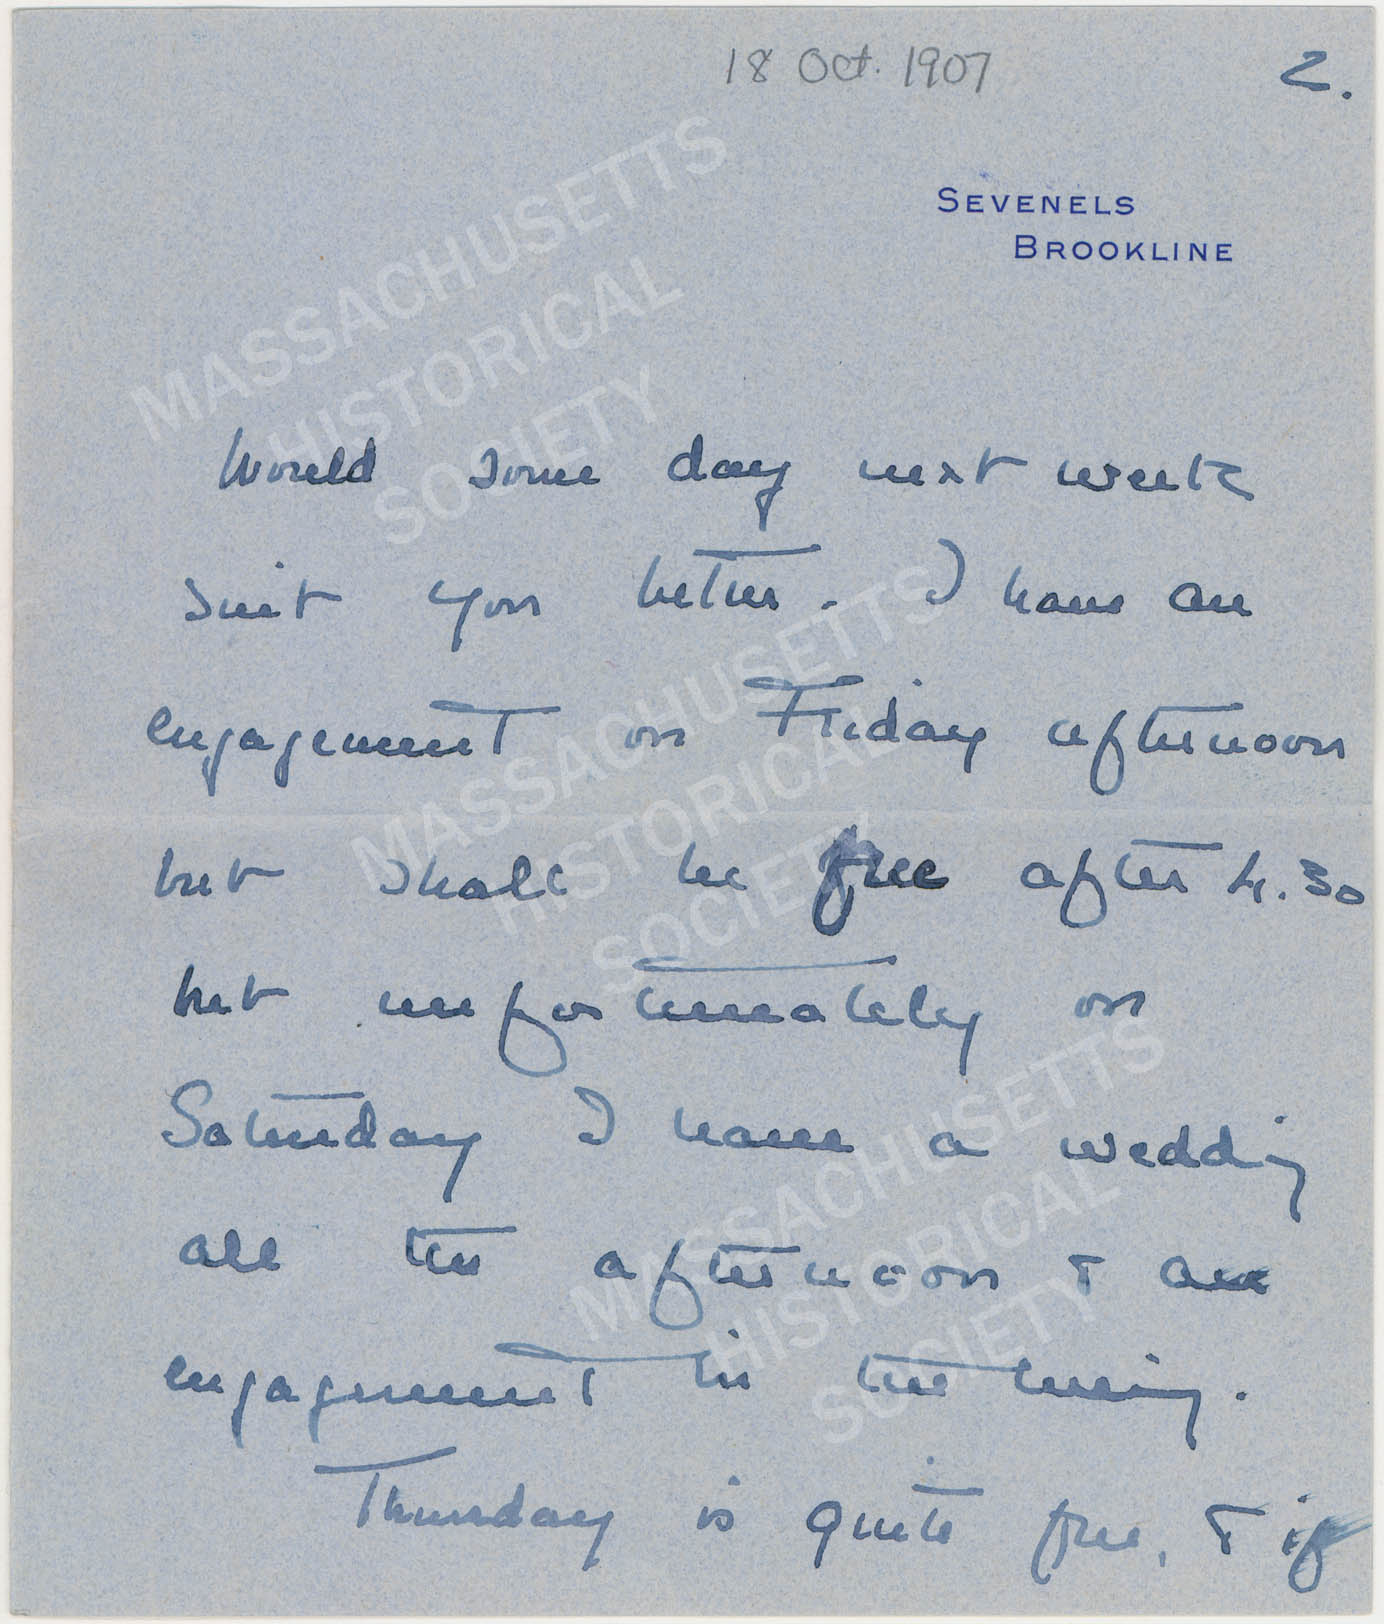 18 Oct. 1907
2.
SEVENELS
BROOKLINE
Would some day next week
suit you better. I have an
engagement on Friday afternoon
but shall be free after 4.30
but unfortunately on
Saturday I have a wedding
all the afternoon & an
engagement in the evening.
Thursday is quite free, & if
MASSACHUSETTS
HISTORICAL
SOCIETY
MASSACHUSETTS
HISTORICAL
SOCIETY
MASSACHUSETTS
HISTORICAL
SOCIETY